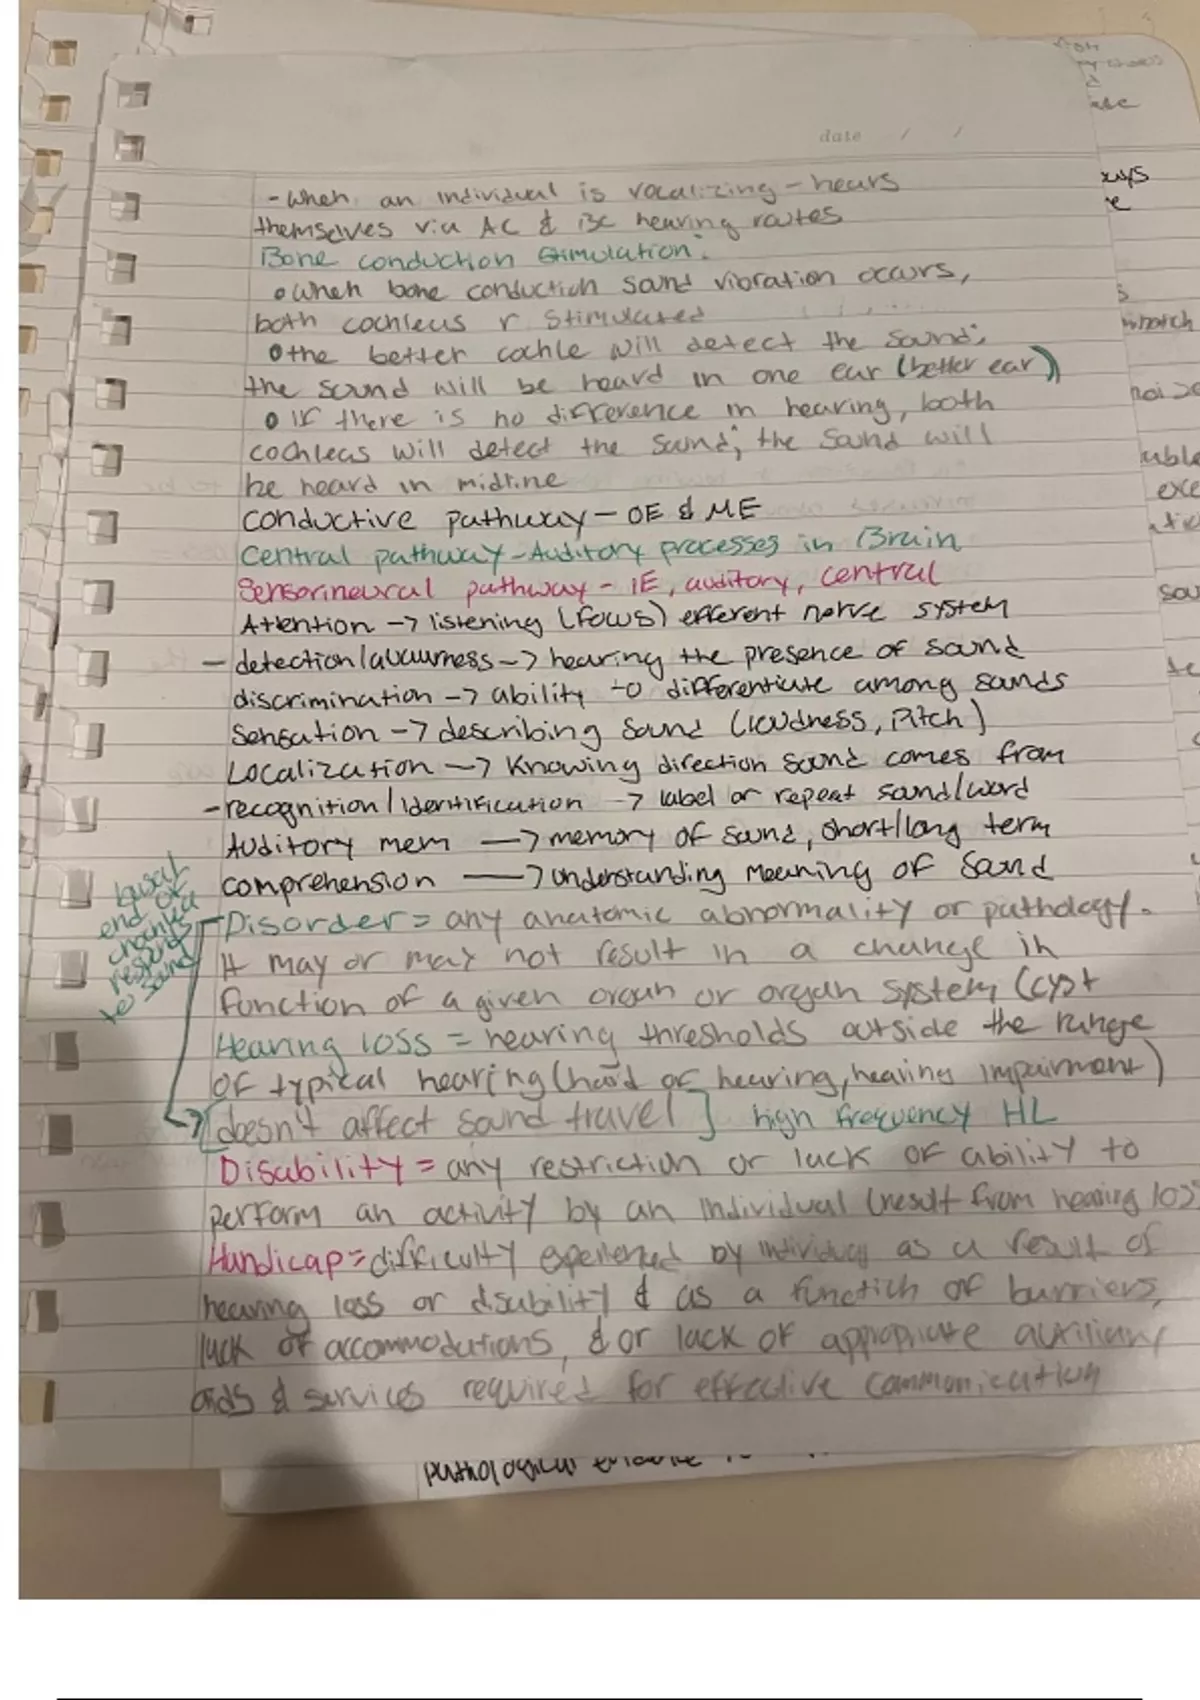 date / /
- When an individual is vocalizing - hears
themselves via AC & BC hearing routes
Bone conduction stimulation:
• when bone conduction sound vibration occurs,
both cochleas r stimulated
• the better cochle will detect the sound;
the sound will be heard in one ear (better ear)
• If there is no difference in hearing, both
cochleas will detect the sound; the sound will
be heard in midline
conductive pathway - OE & ME
Central pathway - Auditory processes in Brain
Sensorineural pathway - IE, auditory, central
Attention -> listening (focus) efferent nerve system
- detection/awareness -> hearing the presence of sound
discrimination -> ability to differentiate among sounds
Sensation -> describing sound (loudness, pitch)
Localization -> knowing direction sound comes from
- recognition/identification -> label or repeat sound/word
Auditory mem -> memory of sound, short/long term
comprehension -> understanding meaning of sound
basal
end of
cochlea
responds
to sound
Disorder = any anatomic abnormality or pathology.
It may or may not result in a change in
function of a given organ or organ system (cyst
Hearing loss = hearing thresholds outside the range
of typical hearing (hard of hearing, hearing impairment)
[doesn't affect sound travel] high frequency HL
Disability = any restriction or lack of ability to
perform an activity by an individual (result from hearing loss
Handicap = difficulty experienced by individual as a result of
hearing loss or disability & as a function of barriers,
lack of accommodations, & or lack of appropriate auxiliary
aids & services required for effective communication
pathological